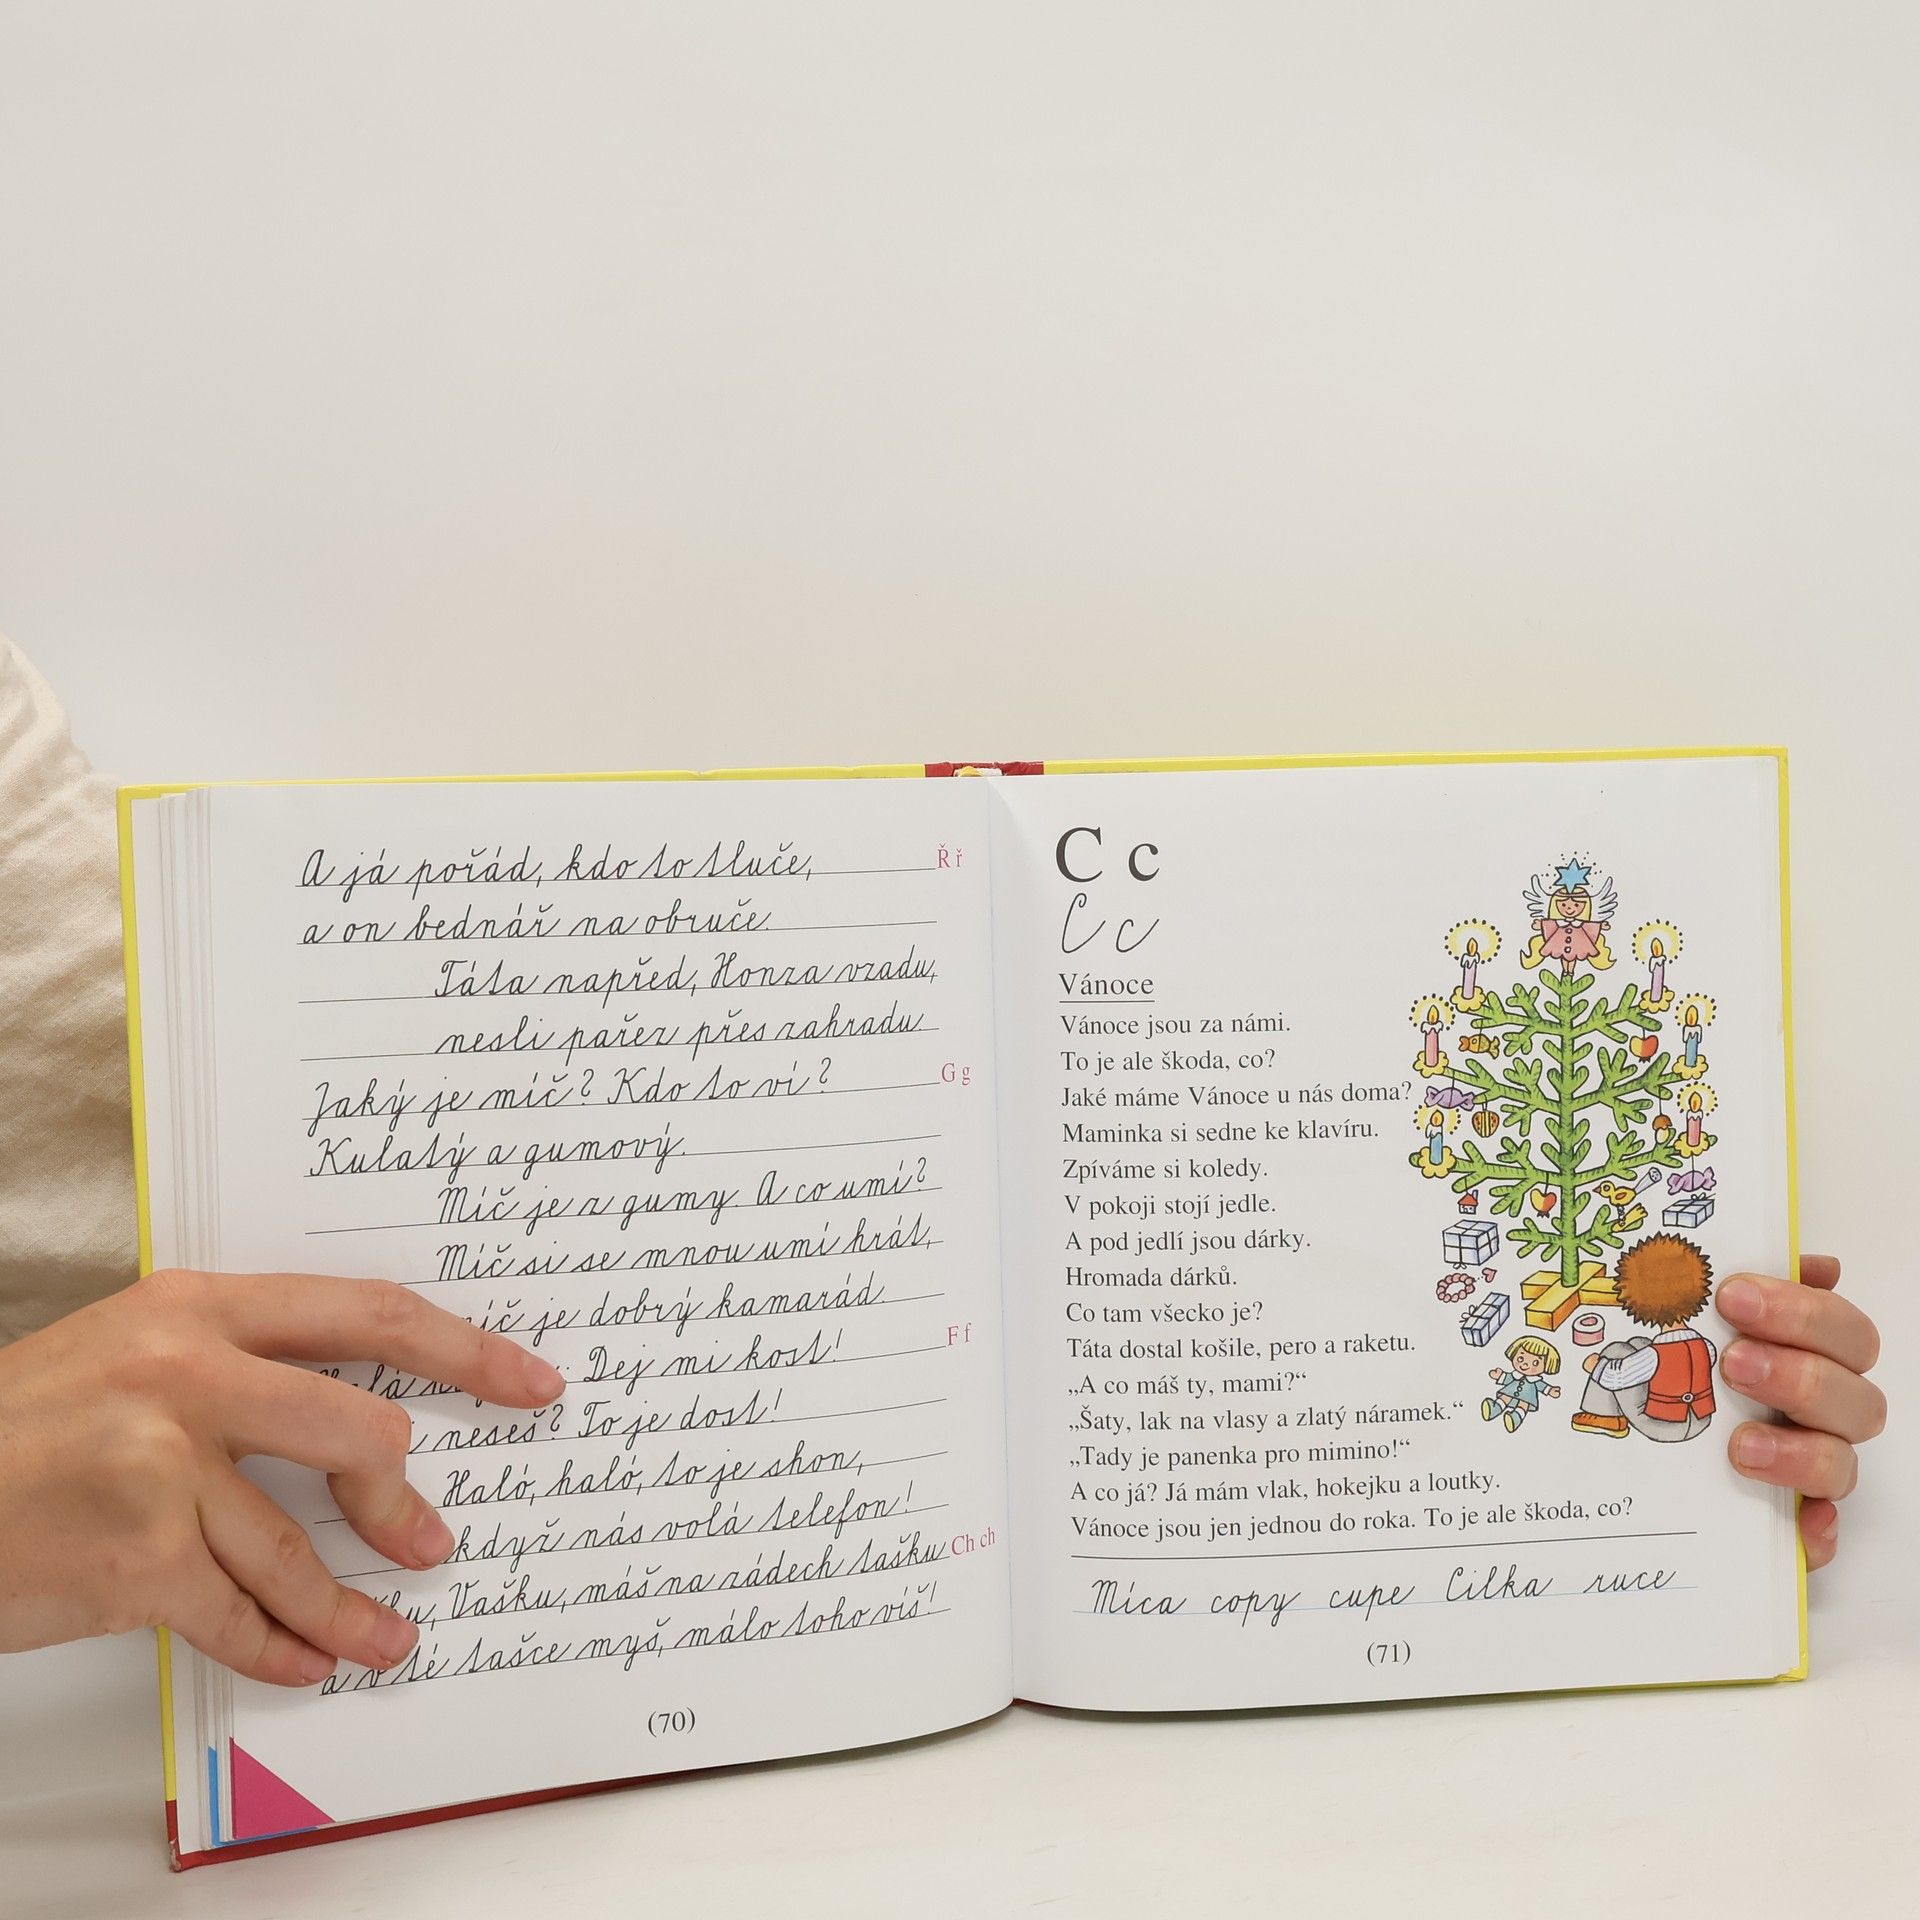 A já pořád, kdo to tluče, Ř ř
a on bednář na obruče.
Táta napřed, Honza vzadu,
nesli pařez přes zahradu.
Jaký je míč? Kdo to ví? G g
Kulatý a gumový.
Míč je z gumy. A co umí?
Míč si se mnou umí hrát,
míč je dobrý kamarád.
Dej mi kost! F f
neseš? To je dost!
Haló, haló, to je shon,
když nás volá telefon!
Vašku, máš na zádech tašku Ch ch
a v té tašce myš, málo toho víš!
(70)
C c
C c
Vánoce
Vánoce jsou za námi.
To je ale škoda, co?
Jaké máme Vánoce u nás doma?
Maminka si sedne ke klavíru.
Zpíváme si koledy.
V pokoji stojí jedle.
A pod jedlí jsou dárky.
Hromada dárků.
Co tam všecko je?
Táta dostal košile, pero a raketu.
„A co máš ty, mami?“
„Šaty, lak na vlasy a zlatý náramek.“
„Tady je panenka pro mimino!“
A co já? Já mám vlak, hokejku a loutky.
Vánoce jsou jen jednou do roka. To je ale škoda, co?
Míca copy cupe Cilka ruce
(71)